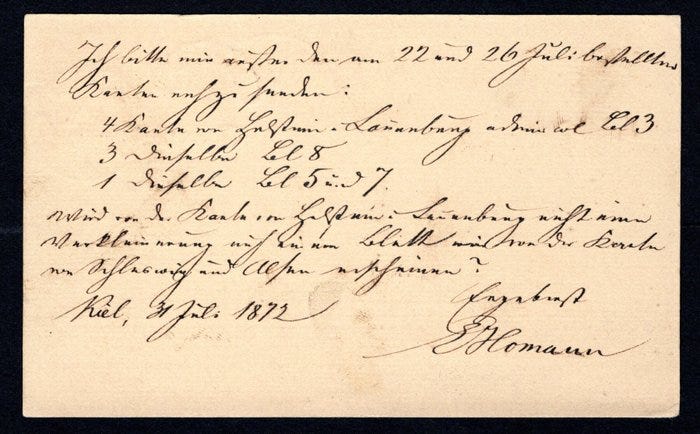 Ich bitte mir außer den am 22 und 26 Juli bestellten
Karten noch zu senden:
4 Karte von Holstein u. Lauenburg Bl 3
3 Dieselbe Bl 8
1 Dieselbe Bl 5 und 7.
Wird von der Karte von Holstein u. Lauenburg nicht eine
Verkleinerung auf einem Blatt wie von der Karte
von Schleswig und Alsen erscheinen?
Ergebenst
Kiel, 31 Juli 1872
E Homann